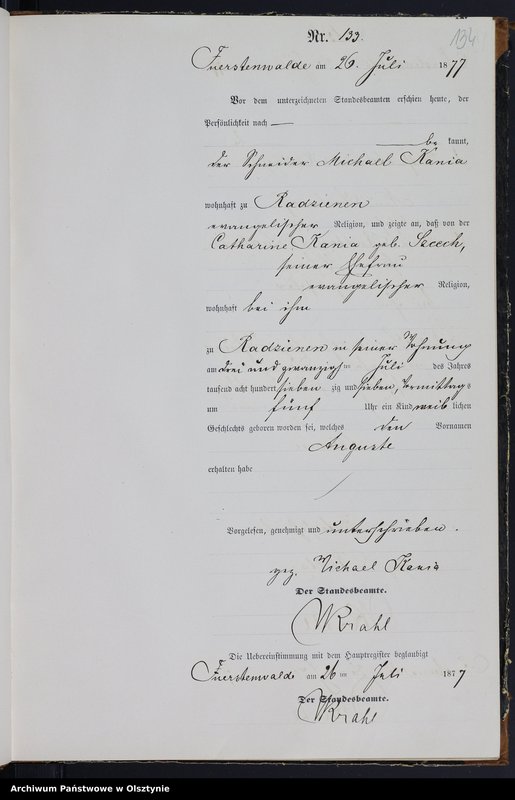 134
Nr. 133.
Fuerstenwalde am 26. Juli 1877
Vor dem unterzeichneten Standesbeamten erschien heute, der
Persönlichkeit nach
be kannt,
der Schneider Michael Kania
wohnhaft zu Radzienen
evangelischer Religion, und zeigte an, daß von der
Catharine Kania geb. Szcech,
seiner Ehefrau
evangelischer Religion,
wohnhaft bei ihm
zu Radzienen in seiner Wohnung
am drei und zwanzigsten Juli des Jahres
tausend acht hundert sieben zig und sieben, Vormittags
um fünf Uhr ein Kind weib lichen
Geschlechts geboren worden sei, welches den Vornamen
Auguste
erhalten habe
Vorgelesen, genehmigt und unterschrieben.
gez. Michael Kania
Der Standesbeamte.
WKrahl
Die Uebereinstimmung mit dem Hauptregister beglaubigt
Fuerstenwalde am 26 ten Juli 1877
Der Standesbeamte.
WKrahl
Archiwum Państwowe w Olsztynie